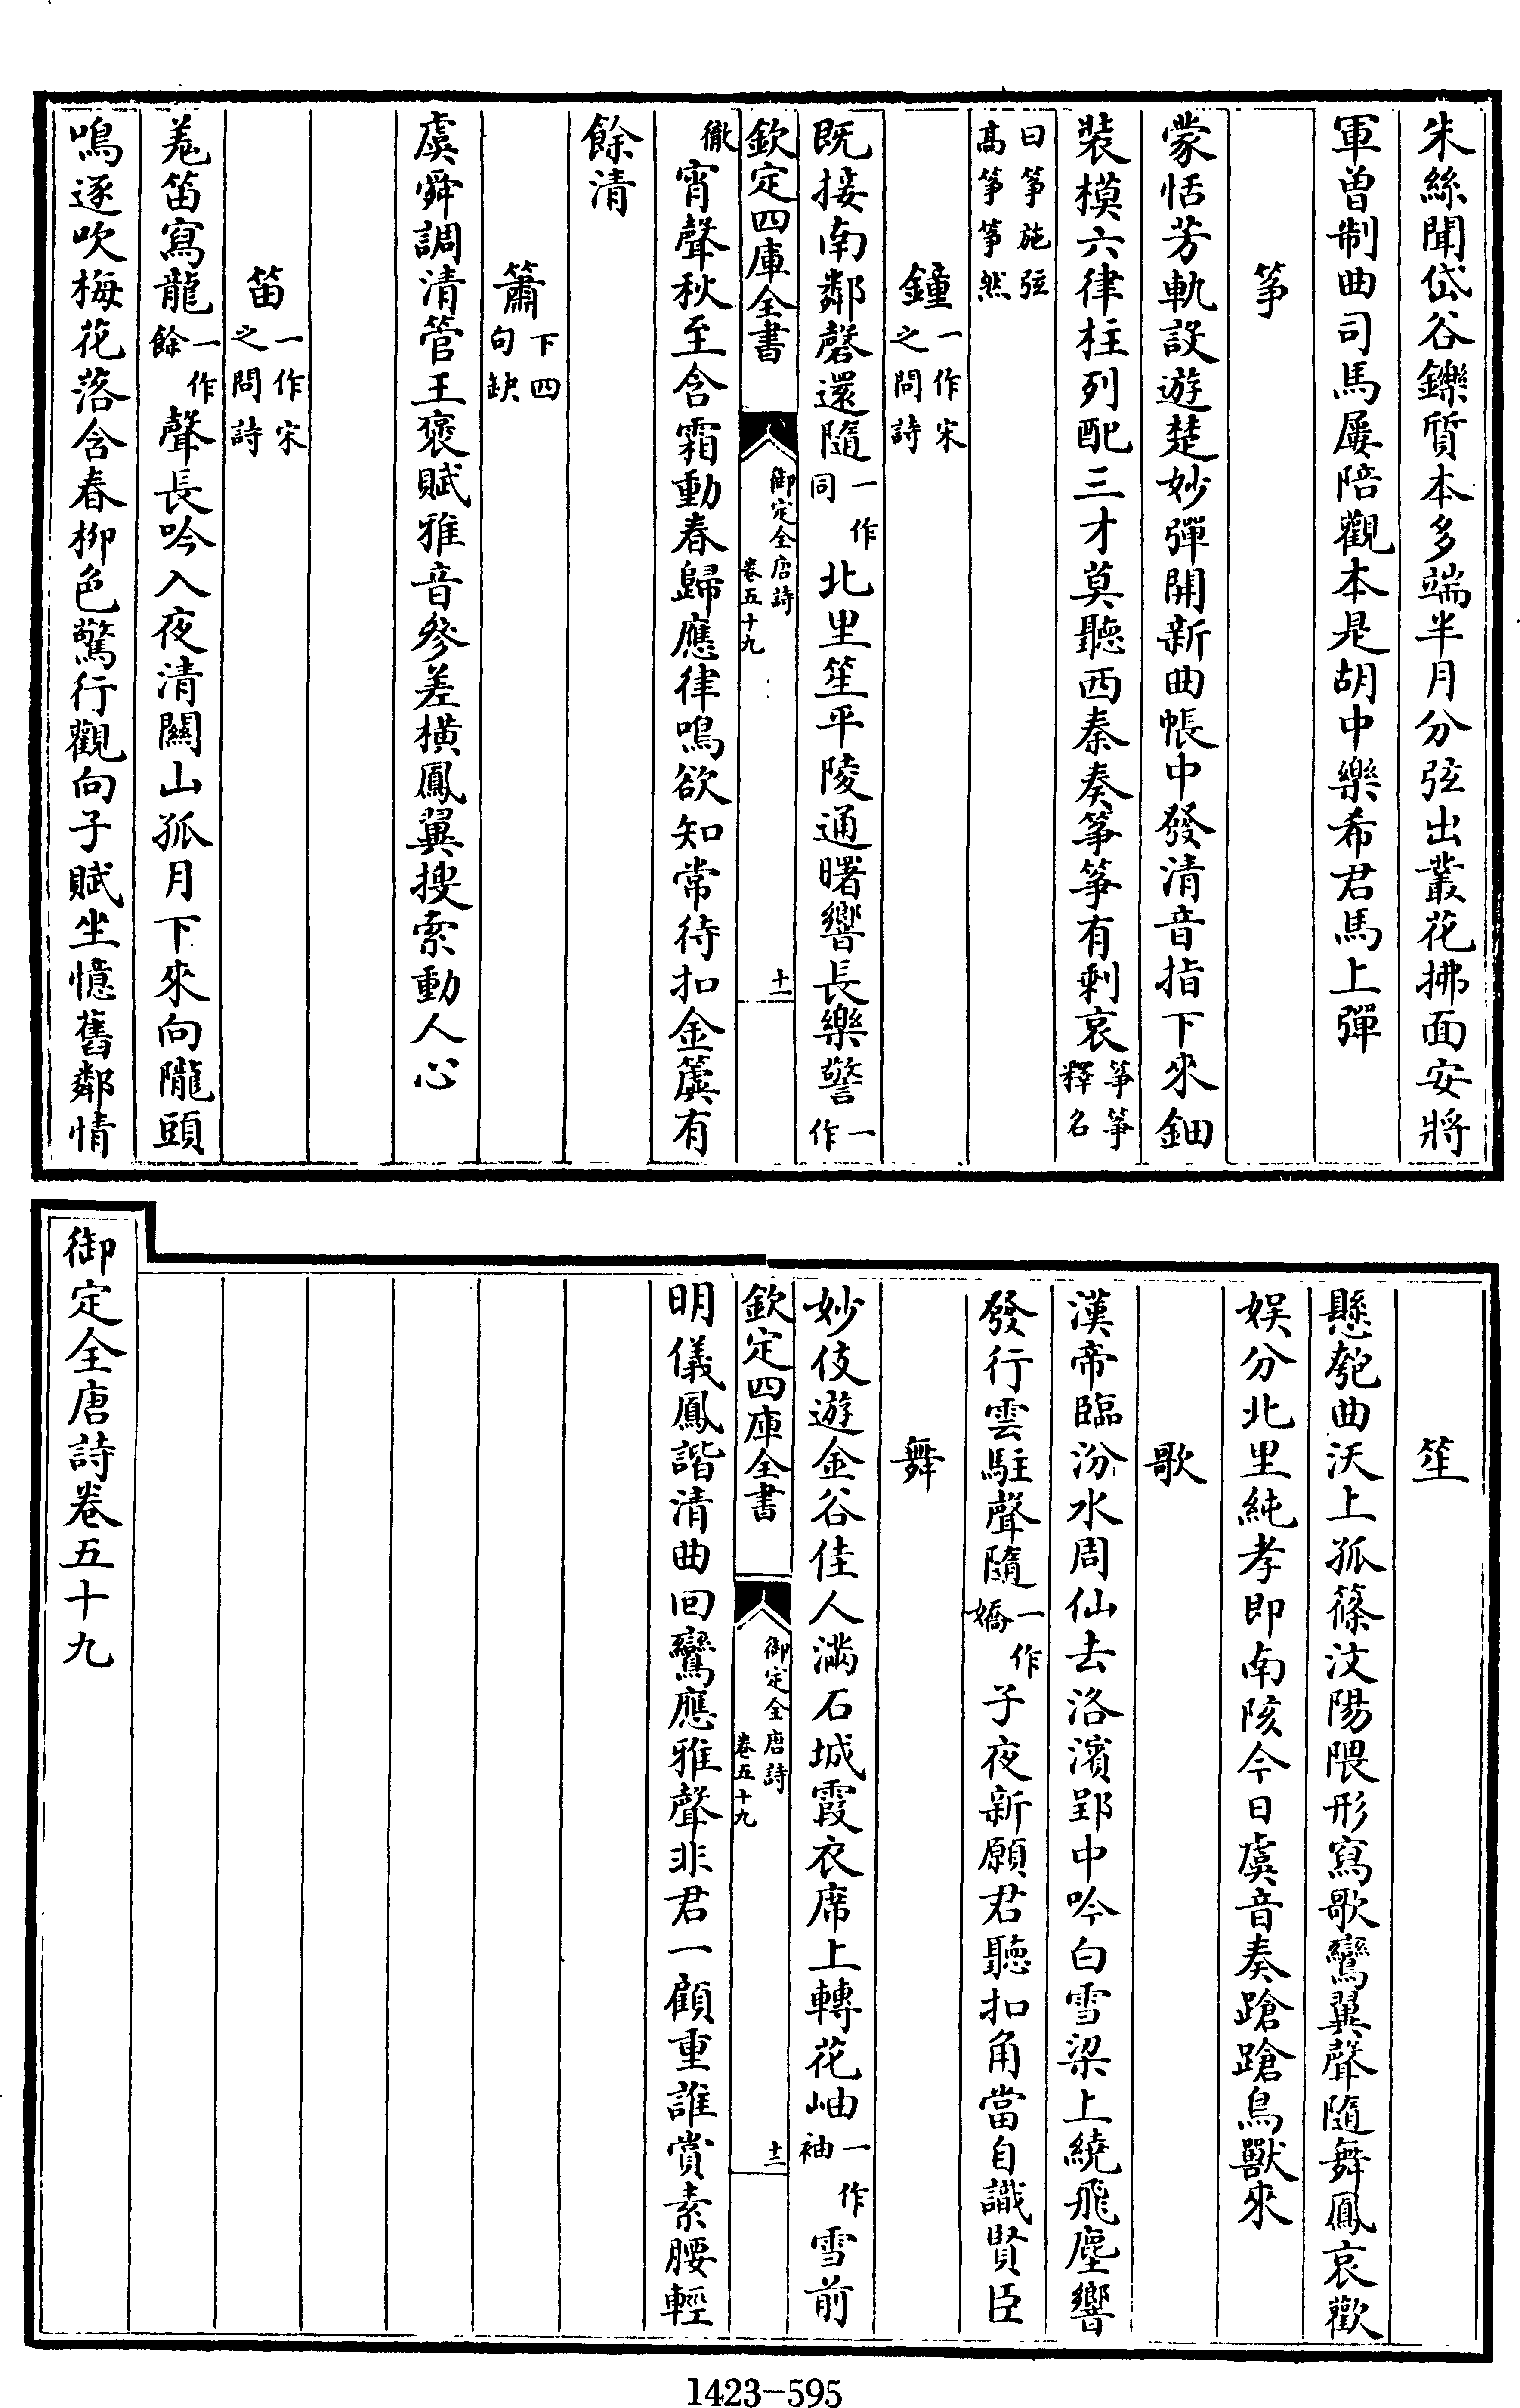 朱絲聞岱谷鑠質本多端半月分弦出叢花拂面安將
軍曾制曲司馬屢陪觀本是胡中樂希君馬上彈
箏
蒙恬芳軌設遊楚妙彈開新曲帳中發清音指下來鈿
裝模六律柱列配三才莫聽西秦奏箏箏有剩哀箏箏釋名
曰箏施弦高箏箏然
鐘一作宋之問詩
既接南鄰磬還隨一作同北里笙平陵通曙響長樂警一作
欽定四庫全書
御定全唐詩卷五十九
十一
徹宵聲秋至含霜動春歸應律鳴欲知常待扣金簴有
餘清
簫下四句缺
虞舜調清管王褒賦雅音參差橫鳳翼搜索動人心
笛一作宋之問詩
羗笛寫龍一作餘聲長吟入夜清關山孤月下來向隴頭
鳴逐吹梅花落含春栁色驚行觀向子賦坐憶舊鄰情
笙
懸匏曲沃上孤篠汶陽隈形寫歌鸞翼聲隨舞鳳哀歡
娯分北里純孝即南陔今日虞音奏蹌蹌鳥獸來
歌
漢帝臨汾水周仙去洛濱郢中吟白雪梁上繞飛塵響
發行雲駐聲隨一作嬌子夜新願君聽扣角當自識賢臣
舞
妙伎遊金谷佳人滿石城霞衣席上轉花岫一作袖雪前
欽定四庫全書
御定全唐詩卷五十九
十二
明儀鳳諧清曲回鸞應雅聲非君一顧重誰賞素腰輕
御定全唐詩卷五十九
1423-595